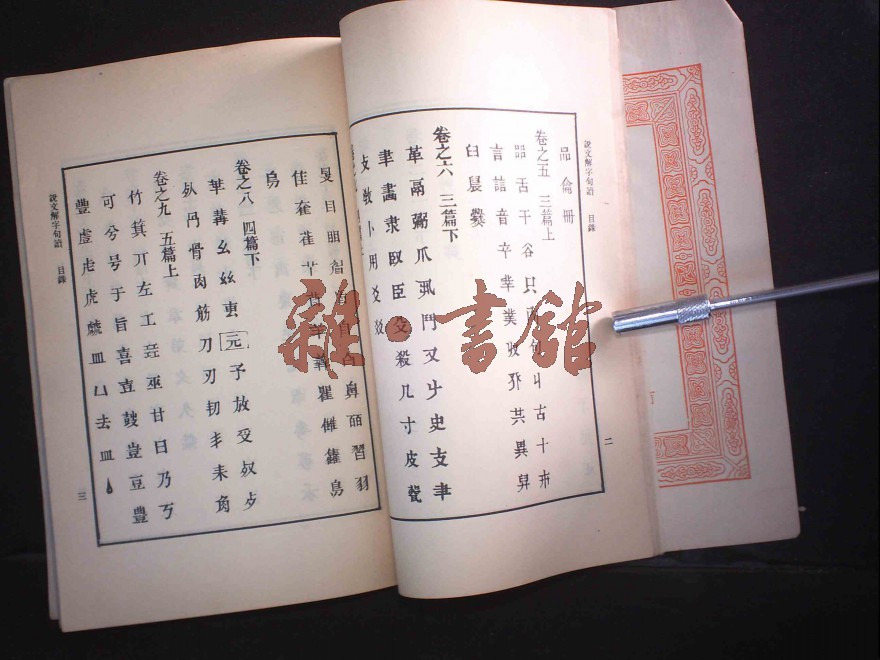 說文解字句讀 目錄
品龠冊
卷之五 三篇上
㗊舌干谷只㕯句丩古十卅
言誩音䇂丵菐𠬞𠬜共異舁
𦥑䢅爨
卷之六 三篇下
革鬲䰜爪丮鬥又𠂇史支𦘒
聿畫隶臤臣殳殺几寸皮㼱
攴敎卜用爻㸚
二
𡕥目䀠眉盾自白鼻皕習羽
隹奞雈𦫳苜羊羴瞿雔雥鳥
烏
卷之八 四篇下
𠦒冓幺𢆶叀元予放𠬪𣦼歺
𣦵冎骨肉筋刀刃㓞丯耒角
卷之九 五篇上
竹箕丌左工㠭巫甘曰乃丂
可兮号于旨喜壴鼓豈豆豊
豐䖒虍虎虤皿𠙴去血丶
說文解字句讀 目錄
三
雜·書館